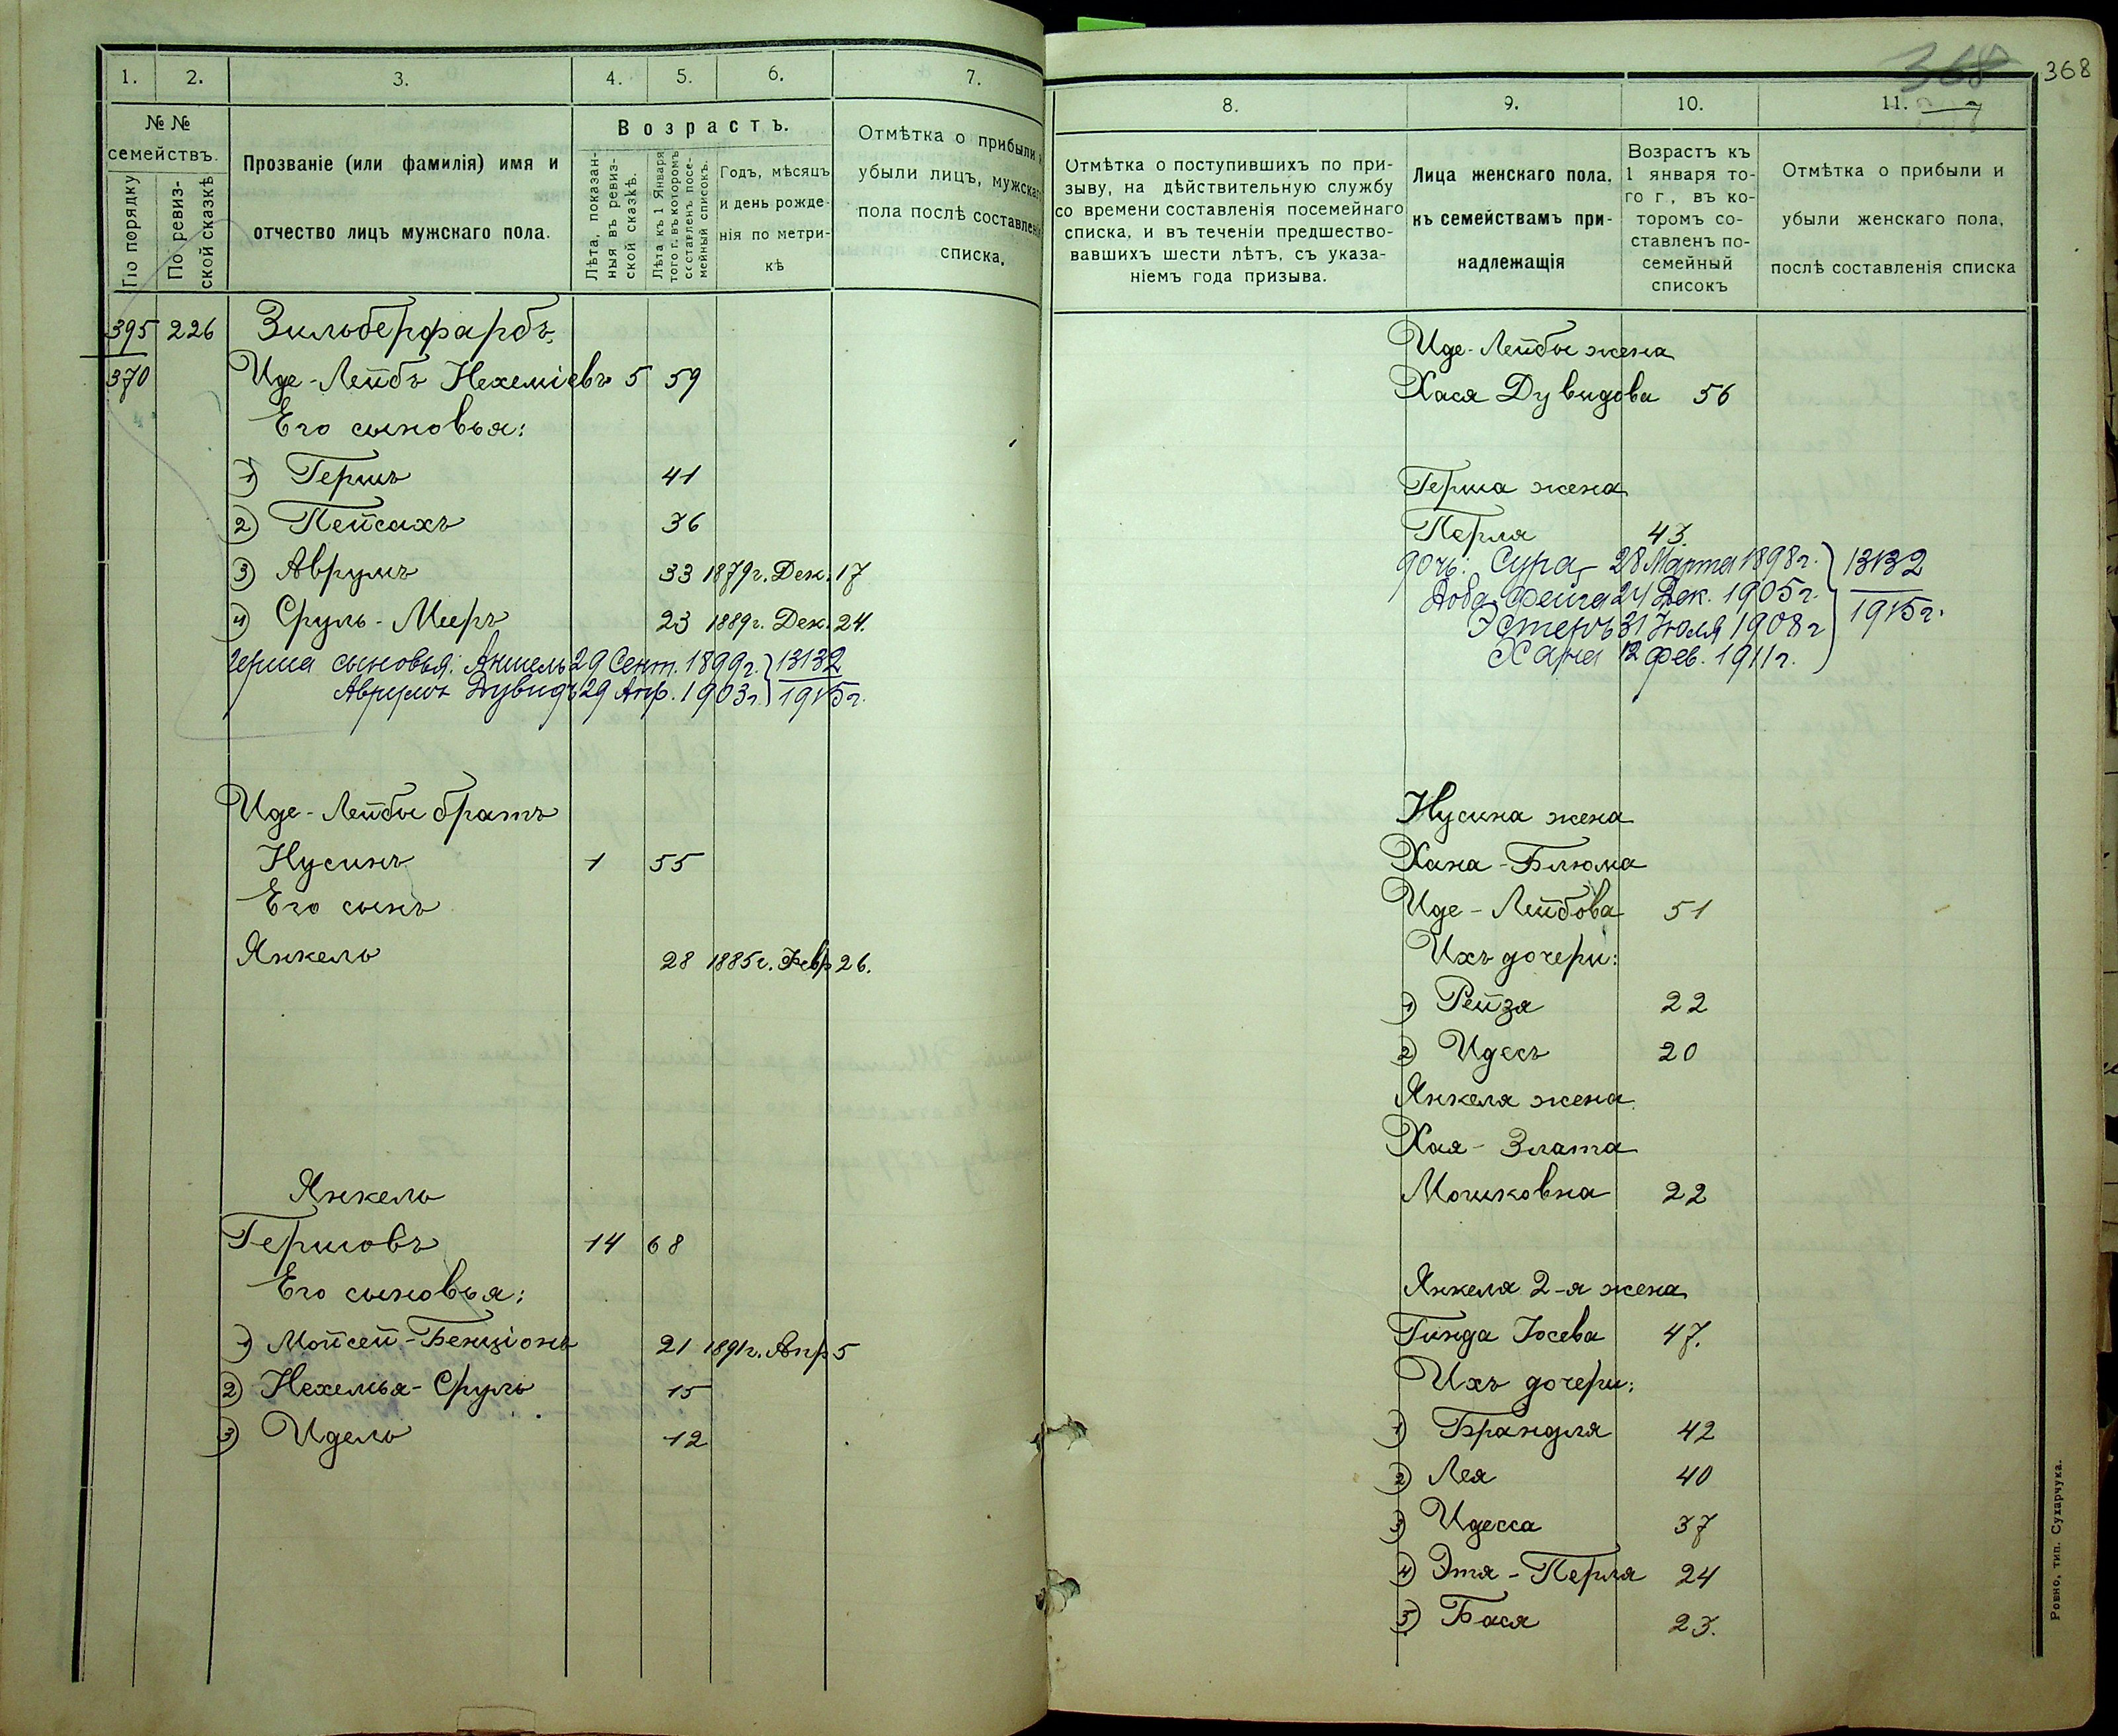 1. 2. 3. 4. 5. 6. 7.
№ №
семействъ.
По порядку
По ревиз-
ской сказкѣ
Прозваніе (или фамилія) имя и
отчество лицъ мужскаго пола.
Возрастъ.
Лѣта, показан-
ныя въ ревиз-
ской сказкѣ.
Лѣта къ 1 Января
того г. въ которомъ
составленъ посе-
мейный списокъ.
Годъ, мѣсяцъ
и день рожде-
нія по метри-
кѣ
Отмѣтка о прибыли и
убыли лицъ, мужскаго
пола послѣ составленія
списка.
395 226 Зильберфарбъ.
370 Иде-Лейбъ Нехеміевъ 5 59
Его сыновья:
1) Гершъ 41
2) Пейсахъ 36
3) Аврумъ 33 1879г. Дек. 17
4) Сруль-Мееръ 23 1889г. Дек. 24.
Герша сыновья: Аншель 29 Сент. 1899г. } 13132
Аврумъ Дувидъ 29 Апр. 1903г. } 1915г.
Иде-Лейбы братъ
Нусинъ 1 55
Его сынъ
Янкель 28 1885г. Февр 26.
Янкель
Гершовъ 14 68
Его сыновья:
1) Мойсей-Бенціонъ 21 1891г. Апр 5
2) Нехемья-Сруль 15
3) Идель 12
368
368
8. 9. 10. 11.
Отмѣтка о поступившихъ по при-
зыву, на дѣйствительную службу
со времени составленія посемейнаго
списка, и въ теченіи предшество-
вавшихъ шести лѣтъ, съ указа-
ніемъ года призыва.
Лица женскаго пола,
къ семействамъ при-
надлежащія
Возрастъ къ
1 января то-
го г., въ ко-
торомъ со-
ставленъ по-
семейный
списокъ
Отмѣтка о прибыли и
убыли женскаго пола,
послѣ составленія списка
Иде-Лейбы жена
Хася Дувидова 56
Герша жена
Перля 43.
дочь: Сура - 28 Марта 1898г. } 13132
Доба-Фейга 24 Дек. 1905г. } 1915г.
Эстеръ 31 Іюля 1908г
Хана 12 фев. 1911г.
Нусина жена
Хана-Блюма
Иде-Лейбова 51
Ихъ дочери:
1) Рейзя 22
2) Идесъ 20
Янкеля жена
Хая-Злата
Мошковна 22
Янкеля 2-я жена
Гинда Іосева 47.
Ихъ дочери:
1) Брандля 42
2) Лея 40
3) Идесса 37
4) Этя-Перля 24
5) Бася 23.
Ровно, тип. Сухарчука.